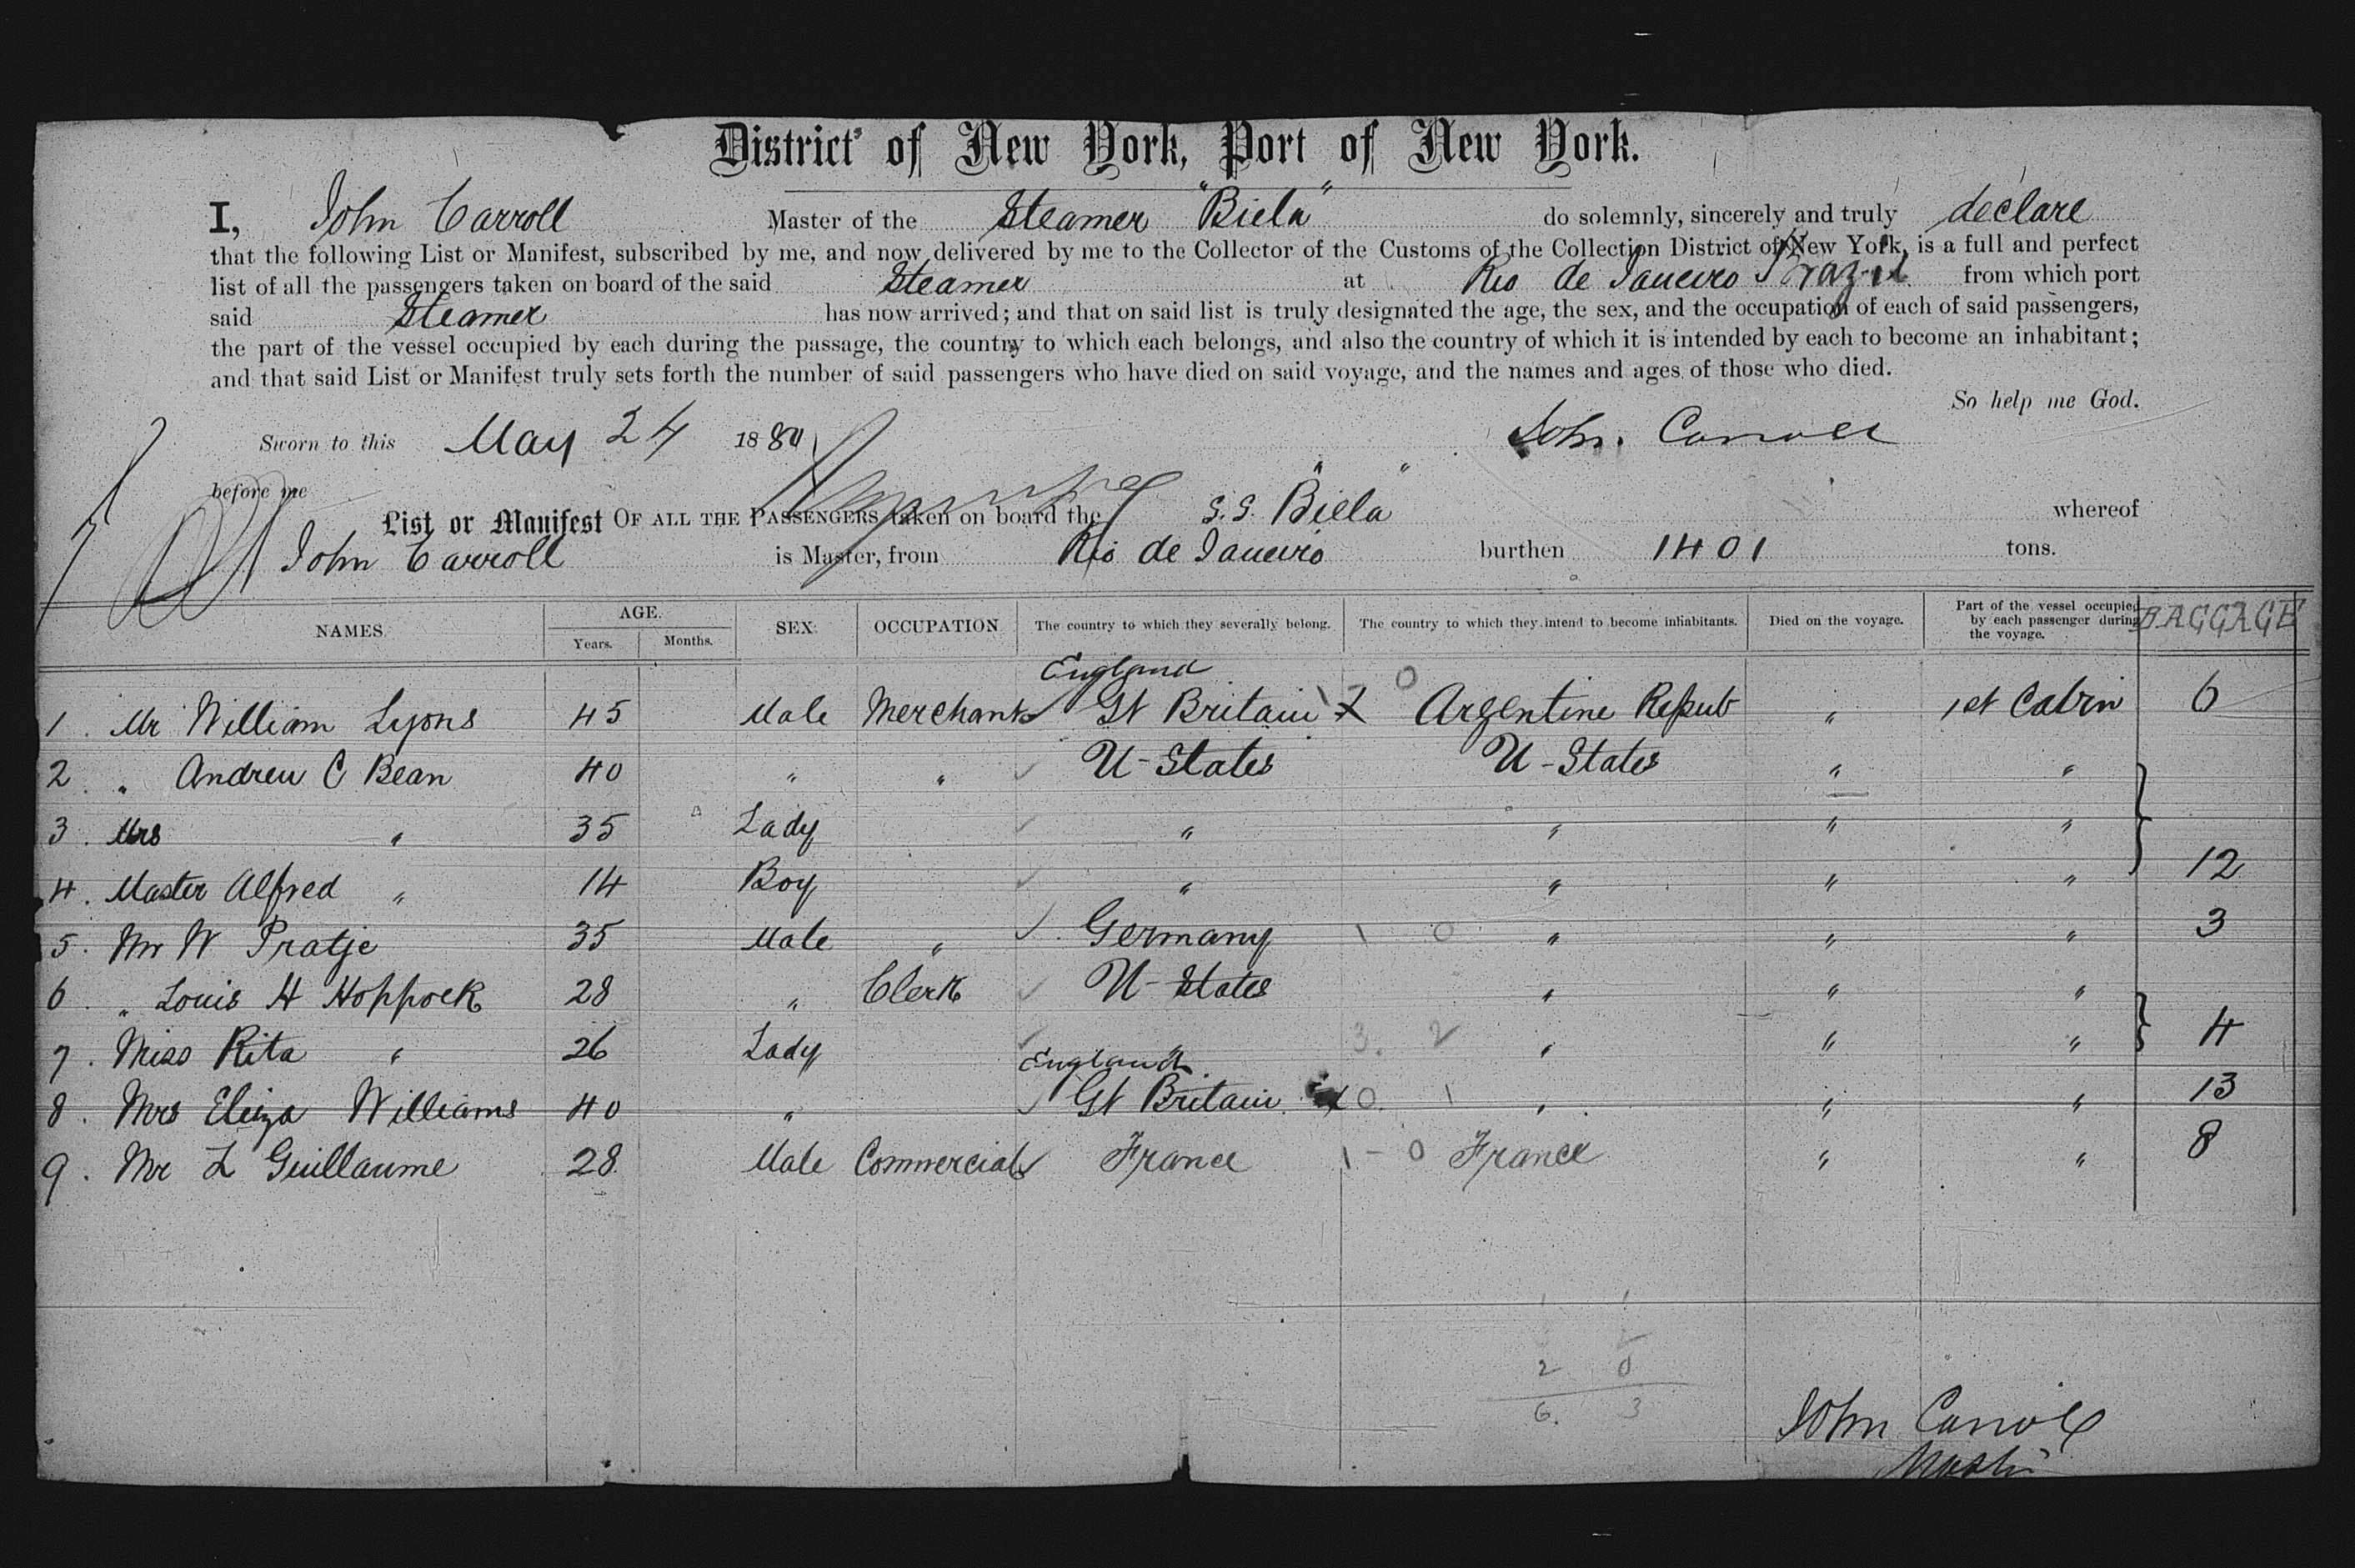 District of New York, Port of New York.
I, John Carroll Master of the Steamer "Biela" do solemnly, sincerely and truly declare
that the following List or Manifest, subscribed by me, and now delivered by me to the Collector of the Customs of the Collection District of New York, is a full and perfect
list of all the passengers taken on board of the said Steamer at Rio de Janeiro Brazil from which port
said Steamer has now arrived; and that on said list is truly designated the age, the sex, and the occupation of each of said passengers,
the part of the vessel occupied by each during the passage, the country to which each belongs, and also the country of which it is intended by each to become an inhabitant;
and that said List or Manifest truly sets forth the number of said passengers who have died on said voyage, and the names and ages of those who died.
So help me God.
Sworn to this May 24 1880 John Carroll
before me
List or Manifest OF ALL THE PASSENGERS taken on board the S.S. "Biela" whereof
John Carroll is Master, from Rio de Janeiro burthen 1401 tons.
NAMES. AGE. Years. Months. SEX. OCCUPATION The country to which they severally belong. The country to which they intend to become inhabitants. Died on the voyage. Part of the vessel occupied by each passenger during the voyage. BAGGAGE
England
1. Mr William Lyons 45 Male Merchant Gt Britain 0 Argentine Repub " 1st Cabin 6
2. " Andrew C Bean 40 " " U-States U-States " "
3. Mrs " 35 Lady " " " "
4. Master Alfred " 14 Boy " " " " 12
5. Mr W Pratje 35 Male " Germany 1 0 " " " 3
6. " Louis H Hoppock 28 " Clerk U-States " " "
7. Miss Rita " 26 Lady " 3. 2 " " " 4
England
8. Mrs Eliza Williams 40 " Gt Britain 0. 1 " " " 13
9. Mr L Guillaume 28 Male Commercial France 1-0 France " " 8
1 1
2
2 0
6. 3
John Carroll
Master